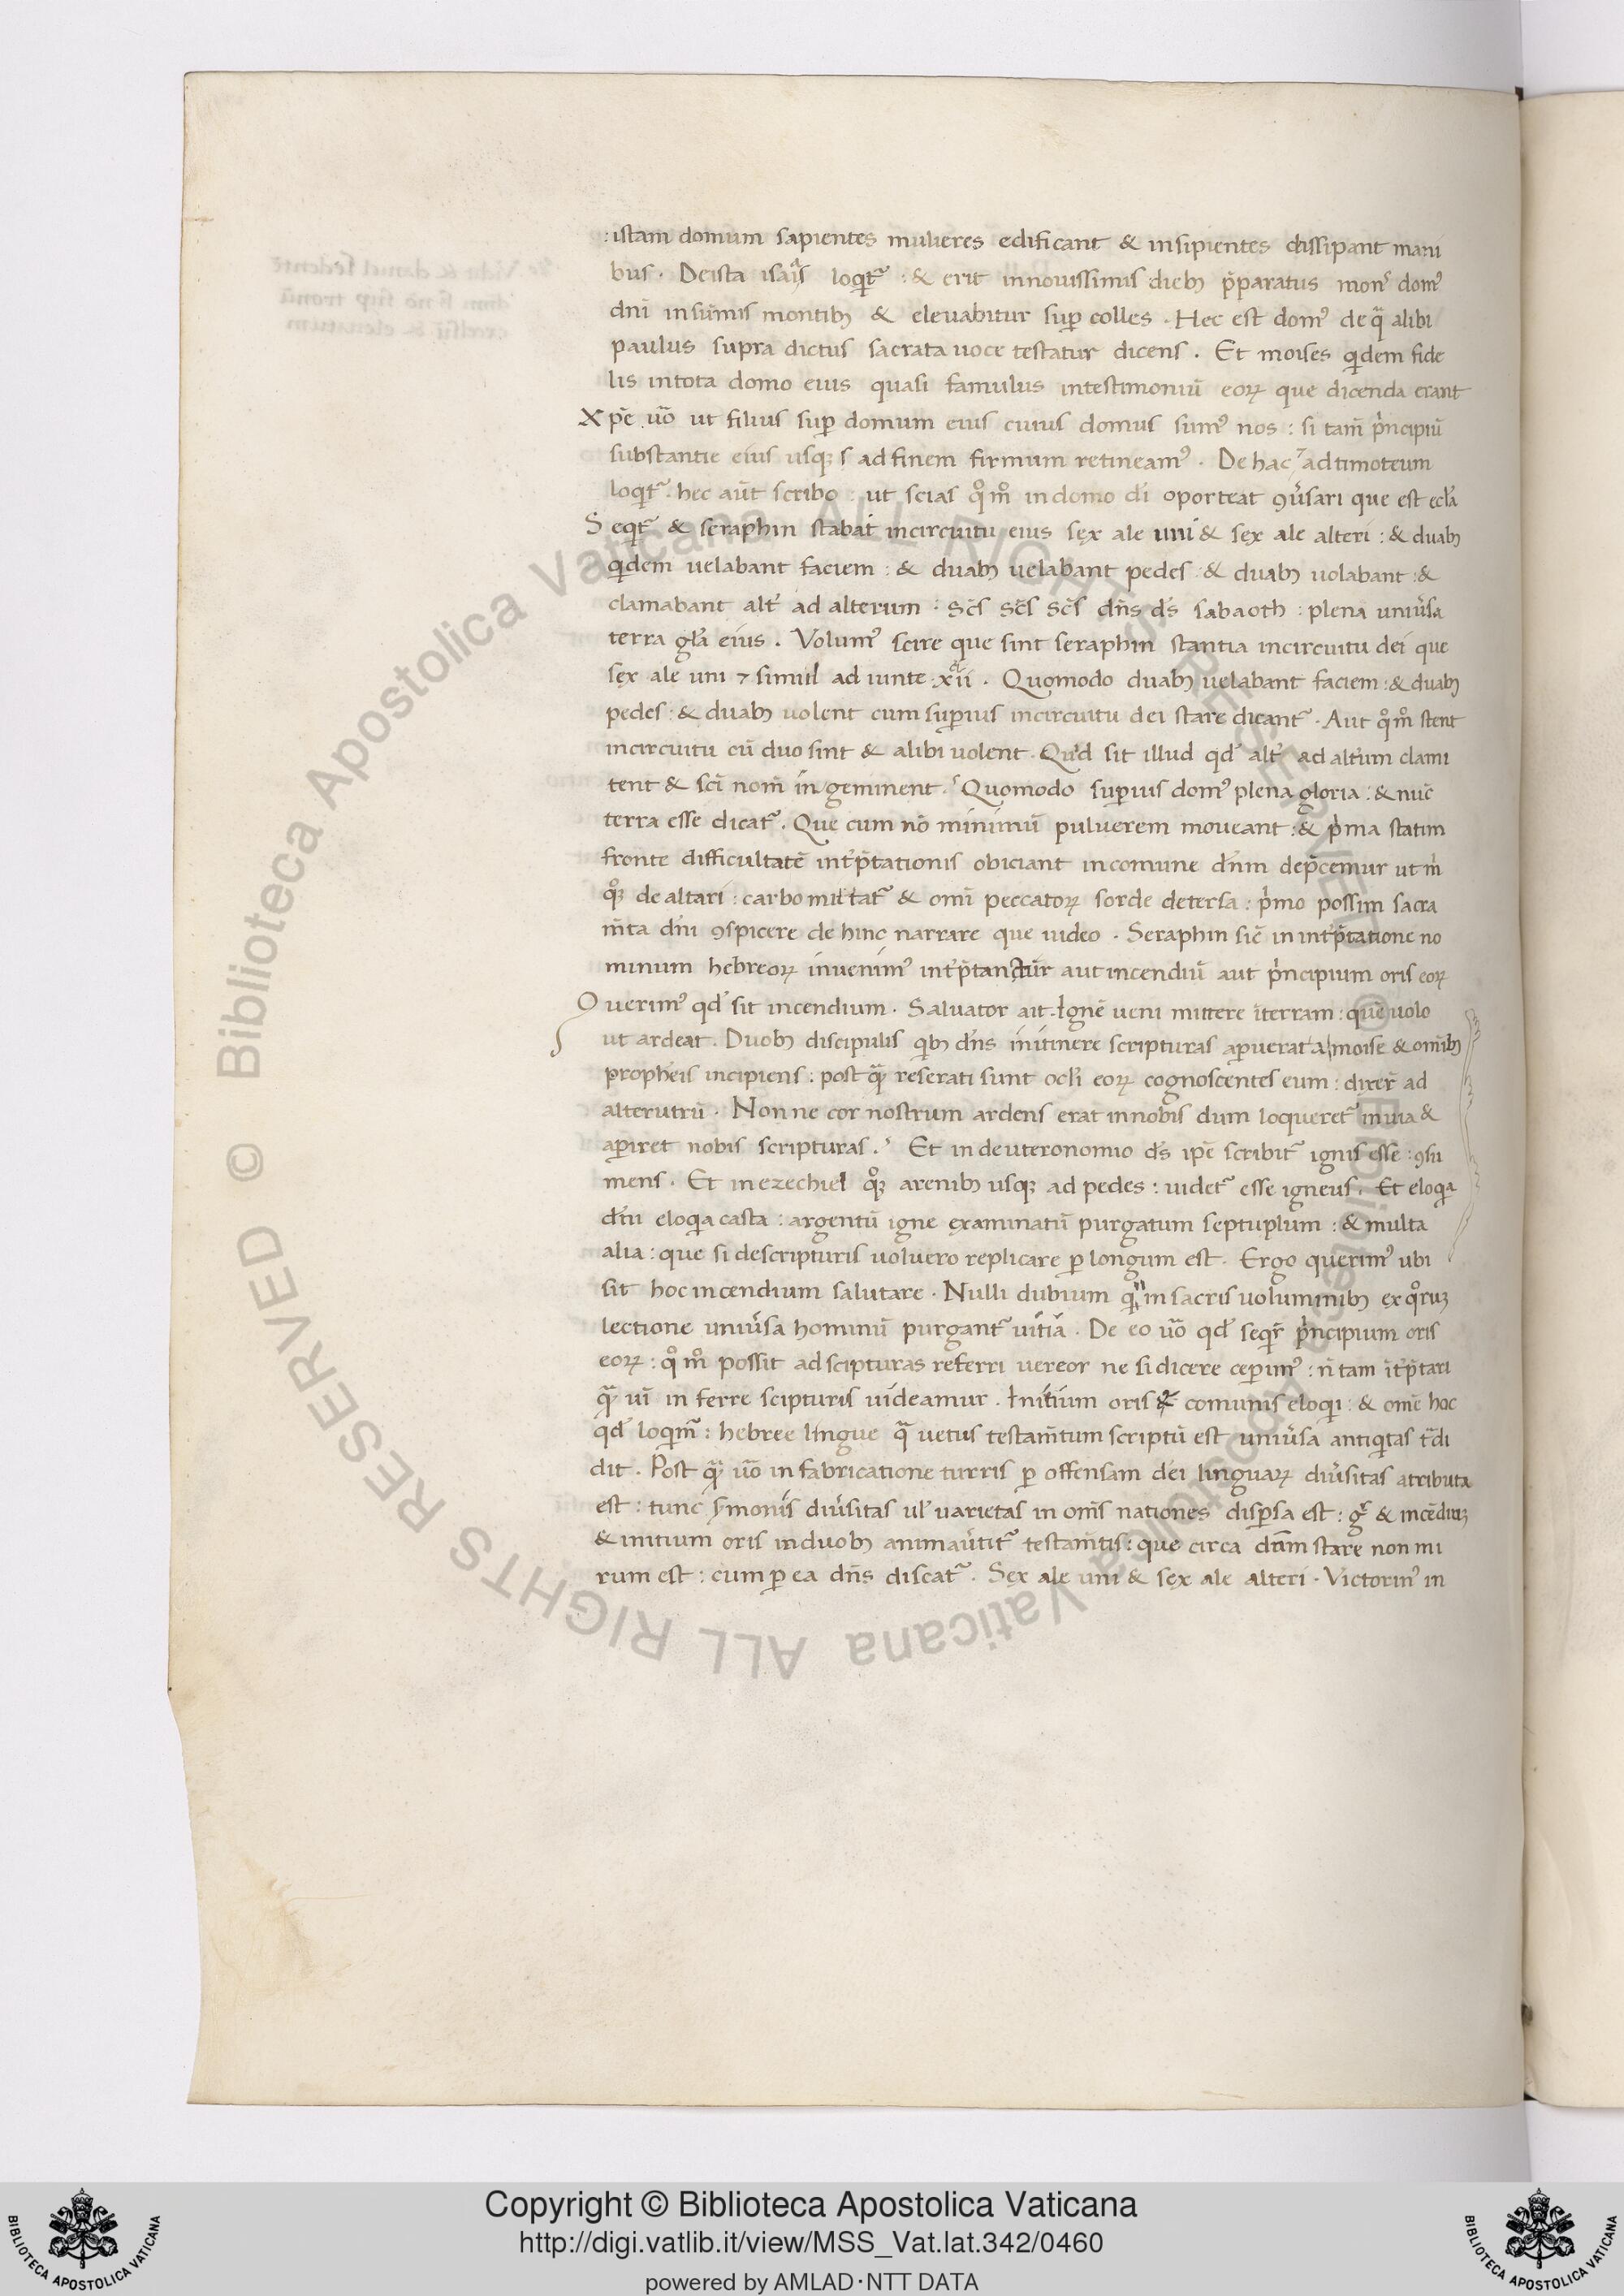 : istam domum sapientes mulieres edificant & insipientes dissipant mani
bus . De ista isaias loqͥt᷑ : & erit innovissimis dieb; p̄paratus mons domꝰ
dnī in sūmis montib; & elevabitur sup̱ colles . Hec est domꝰ de qᷓ alibi
paulus supra dictus sacrata voce testatur dicens . Et moises qͥdem fide
lis in tota domo eius quasi famulus in testimoniū eoꝝ que dicenda erant
Xpē ūo ut filius sup̱ domum eius cuius domus sumꝰ nos : si tam̄ pͥncipiū
substantie eius usqꝫ ad finem firmum retineamꝰ . De hac ⁊ ad timoteum
loqͥt᷑ . hec aūt scribo : ut scias qͦmͦ in domo dī oporteat ꝯv̓sari que est ecl̓a
Seqͥt᷑ & seraphin stabāt incircuitu eius sex ale uni & sex ale alteri : & duab;
qͥdem velabant faciem : & duab; velabant pedes : & duab; volabant : &
clamabant alt̓ ad alterum : sc̄s sc̄s sc̄s dn̄s ds̄ sabaoth : plena univ̓sa
terra gl̓a eius . Volumꝰ scire que sint seraphin stantia incircuitu dei que
sex ale uni ⁊ simul ad iunte xii . Quomodo duab; velabant faciem : & duab;
pedes : & duab; volent cum sup̱ius incircuitu dei stare dicant᷑ . Aut qͦmͦ stent
incircuitu cū duo sint & alibi volent . Quid sit illud qd̓ alt̓ ad alt̓um clami
tent & scī nom̄ in geminent . Quomodo sup̱ius domꝰ plena gloria : & nūc
terra esse dicat᷑ . Que cum nō minimū pulverem moveant : & pͥma statim
fronte difficultatē int̓p̄tationis obiciant incomune dn̄m dep̄cemur ut m̓
qͦꝫ de altari : carbo mittat᷑ & omī peccatoꝝ sorde detersa : pͥmo possim sacra
m̄ta dn̄i ꝯspicere de hinc narrare que video . Seraphin sic̄ in int̓p̄tatione no
minum hebreoꝝ invenimꝰ int̓p̄tantur aut incendiū aut pͥncipium oris eoꝝ
Querimꝰ qd̓ sit incendium . Salvator ait . Ignē veni mittere ī terram : quē volo
ut ardeat . Duob; discipulis qͥb; dn̄s initinere scripturas ap̱uerat a moise & omīb;
propheis incipiens : post qᷓ reserati sunt ocl̓i eoꝝ cognoscentes eum : dixer̄ ad
alterutrū . Nonne cor nostrum ardens erat innobis dum loqueret᷑ invia &
ap̱iret nobis scripturas . Et in deuteronomio ds̄ ip̄e scribit᷑ ignis esse : ꝯsu
mens . Et in ezechiel qͦꝫ a renib; usqꝫ ad pedes : videt᷑ esse igneus . Et eloqͥa
dn̄i eloqͥa casta : argentū igne examinatū purgatum septuplum : & multa
alia : que si descripturis voluero replicare p̱longum est . Ergo querimꝰ ubi
sit hoc incendium salutare . Nulli dubium qͥn in sacris voluminib; ex qͦruꝫ
lectione univ̓sa hominū purgant᷑ vitia . De eo ūo qd̓ seqͥt᷑ pͥncipium oris
eoꝝ : qͦmͦ possit ad scipturas referri vereor ne si dicere cep̱imꝰ : n̄ tam īt̓p̄tari
qᷓ vī in ferre scipturis videamur . Initium oris & comunis eloqͥi : & om̄e hoc
qd̓ loqͥm᷑ : hebree lingue qᷓ vetus testam̄tum scriptū est univ̓sa antiqͥtas t᷑di
dit . Post qᷓ ūo in fabricatione turris p̱ offensam dei linguaꝝ div̓sitas atributa
est : tunc s̓monis div̓sitas vl̓ varietas in om̄s nationes disp̱sa est : gͥ & incēdiuꝫ
& initium oris induob; animav̓tit᷑ testam̄tis : que circa dn̄m stare non mi
rum est : cum p̱ ea dn̄s discat᷑ . Sex ale uni & sex ale alteri . Victorinꝰ in
Copyright © Biblioteca Apostolica Vaticana
http://digi.vatlib.it/view/MSS_Vat.lat.342/0460
powered by AMLAD·NTT DATA
BIBLIOTECA APOSTOLICA VATICANA
BIBLIOTECA APOSTOLICA VATICANA
© Biblioteca Apostolica Vaticana ALL RIGHTS RESERVED
© Biblioteca Apostolica Vaticana ALL RIGHTS RESERVED